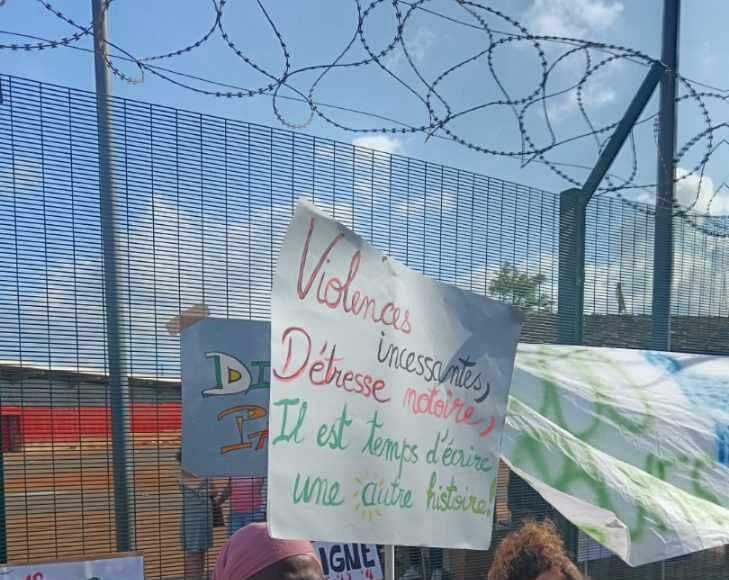 Violences
incessantes,
Détresse notoire,
Il est temps d'écrire
une autre histoire!
DI
PA
IGNE